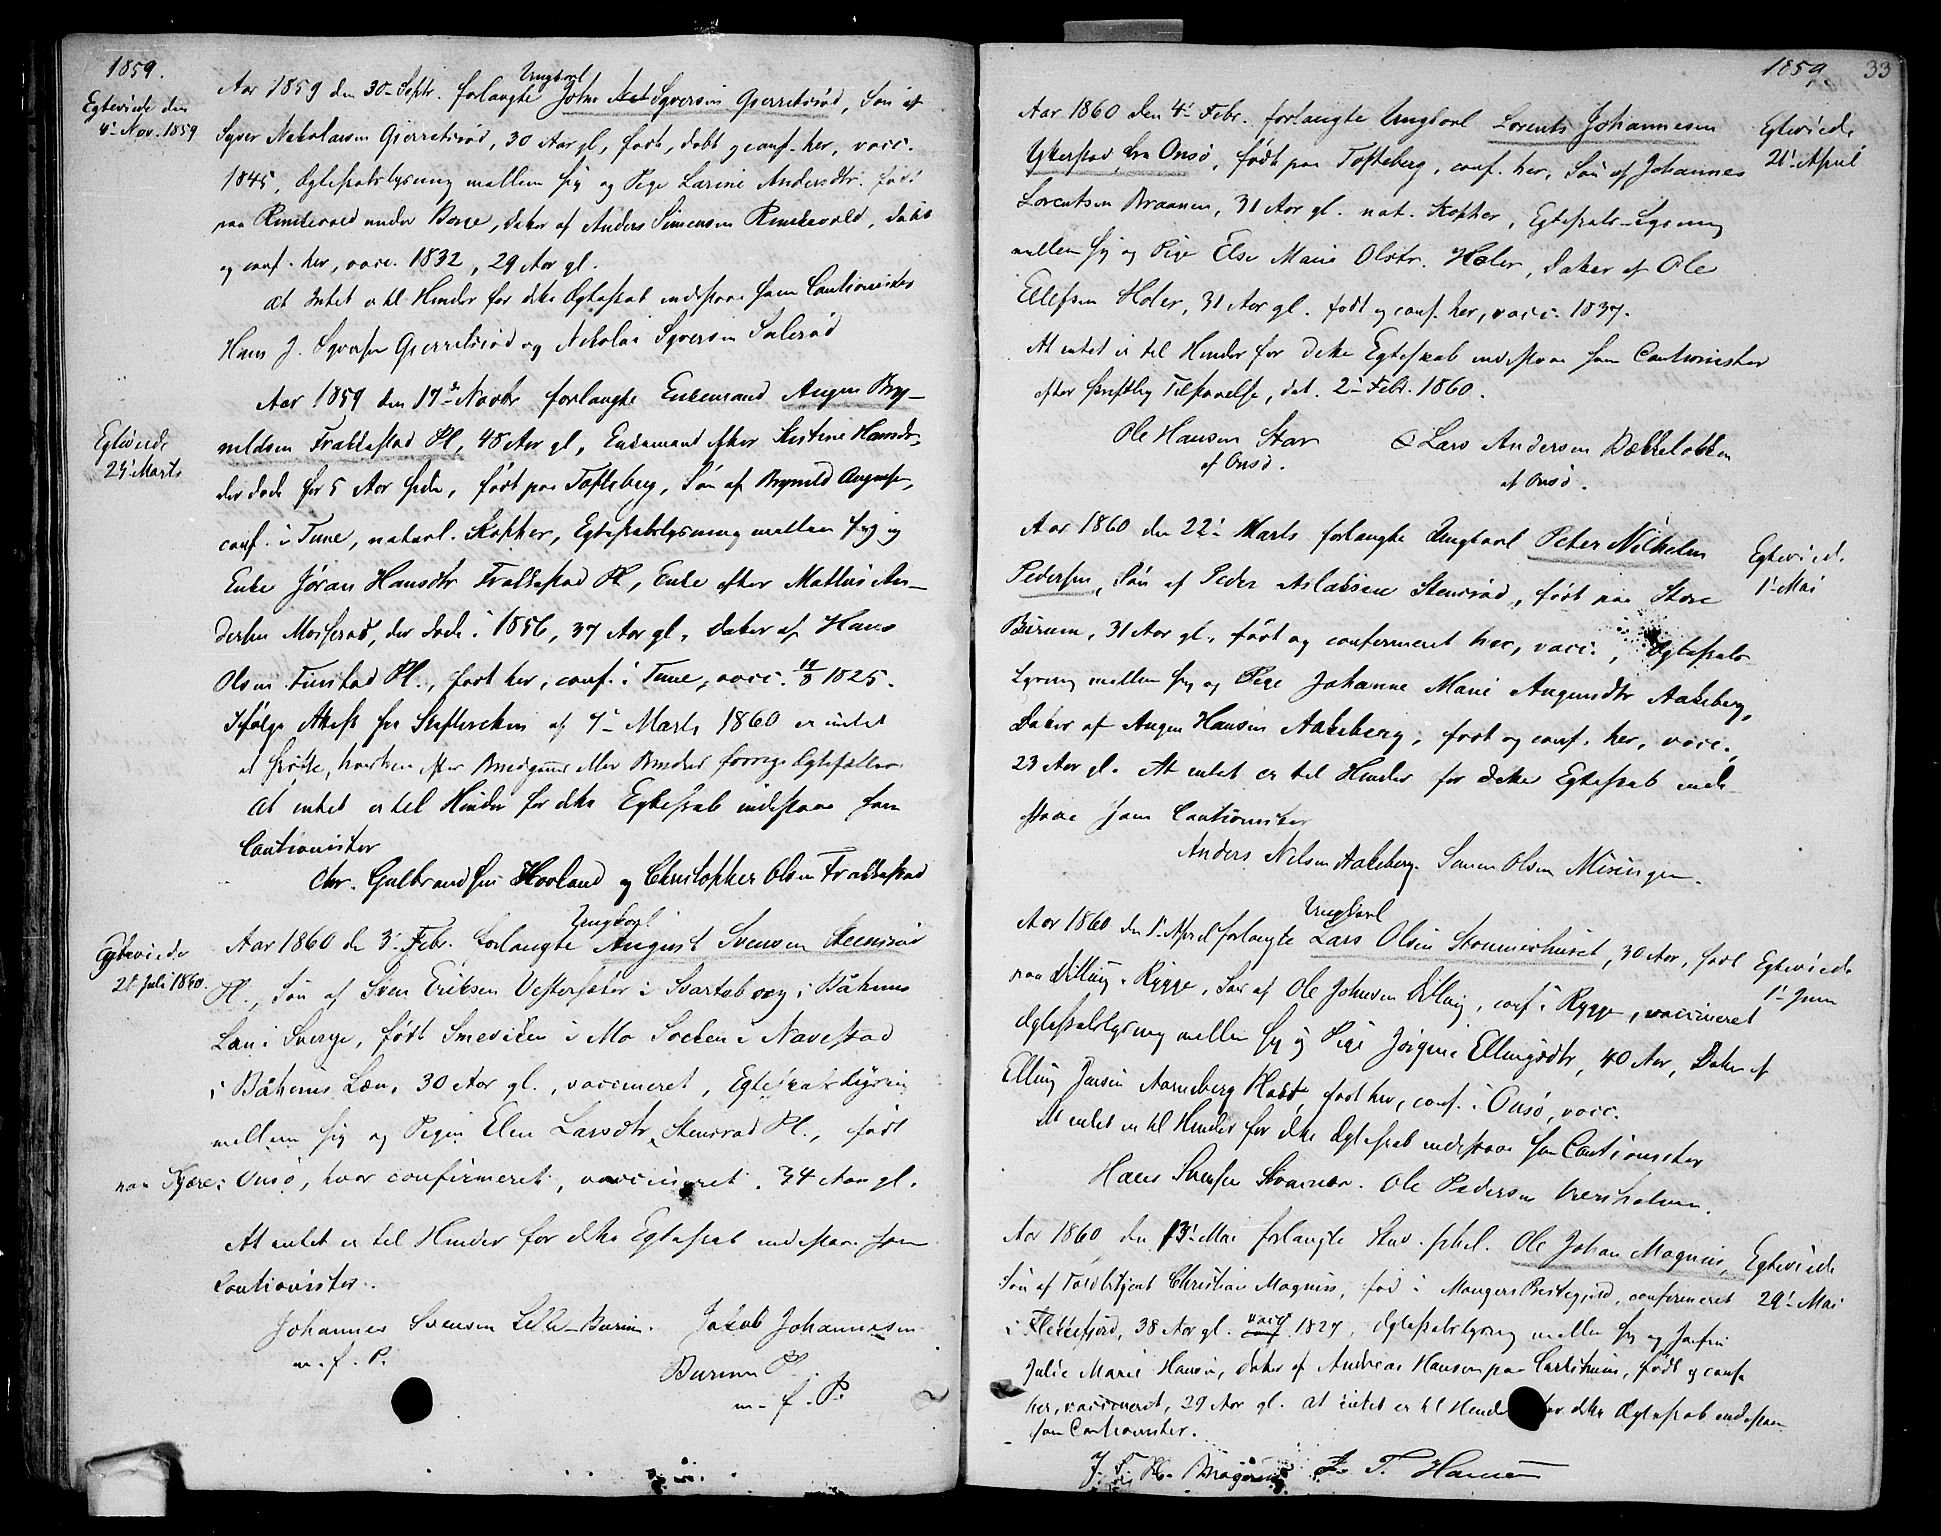 1859.
Egteviede den
4' Nov. 1859
Ungkarl
Aar 1859 den 30' Septr. forlangte Johs Syversen Gjerretsrød, Søn af
Syver Nekolaisen Gjerretsrød, 30 Aar gl, født, døbt og conf. her, vacc.
1845, Egteskabslysning mellem sig og Pige Larine Andersdtr. født
paa Rinkevold under Borge, Datter af Anders Simensen Rinkevold, døbt
og conf. her, vacc. 1832, 29 Aar gl.
At Intet er til Hinder for dette Egteskab indestaae som Cautionister
Hans J. Syversen Gjerretsrød og Nekolai Syversen Salerød
Egteviede
24' Marts
Aar 1859 den 17de Novbr forlangte Enkemand Augen Bry-
nildsen Frakkestad Pl, 48 Aar gl, Enkemand efter Kistine Hansdr,
der døde for 5 Aar siden, født paa Tofteberg, Søn af Brynild Augensen,
conf. i Tune, naturl. Kopper, Egteskabslysning mellem sig og
Enke Jøran Hansdtr Frakkestad Pl, Enke efter Mathis An-
dersen Mosserød, der døde i 1856, 37 Aar gl, Datter af Hans
Olsen Finstad Pl., født her, conf. i Tune, vacc. 1825.
Ifølge Attest fra Skifteretten af 7' Marts 1860 er intet
at skifte, hverken efter Brudgoms eller Bruds forrige Egtefæller.
At intet er til Hinder for dette Egteskab indestaae som
Cautionister
Chr. Gulbrandsen Hovland og Christopher Olsen Frakkestad
Egteviede
21' Juli 1860.
Ungkarl
Aar 1860 de 3' Febr. forlangte August Svensen Steensrød
Pl., Søn af Sven Eriksen Vestersæter i Svarteborg i Båhuus
Len i Sverge, født Smeviken i Mo Socken i Navestad
i Båhuus Læn, 30 Aar gl., vaccineret, Egteskabslysning
mellem sig og Pigen Elen Larsdtr Stensrød Pl., født
paa Kjære i Onsø, hvor confirmeret, vaccineret. 34 Aar gl.
At intet er til Hinder for dette Egteskab indestaae som
Cautionister.
Johannes Svensen Lille-Burum. Jakob Johannesen
m. f. P. Burum Pl.
m. f. P.
1859 33
Aar 1860 den 4' Febr. forlangte Ungkarl Lorents Johannesen
Ykerstad fra Onsø, født paa Tofteberg, conf. her, Søn af Johannes
Lorentsen Braanen, 31 Aar gl. nat. Kopper, Egteskabs-Lysning
mellem sig og Pige Else Marie Olsdtr. Holer, Datter af Ole
Ellefsen Holer, 31 Aar gl. født og conf. her, vacc. 1837.
At intet er til Hinder for dette Egteskab indestaae som Cautionister
efter skriftlig Tilstaaelse, dat. 2' Febr. 1860.
Ole Hansen Star & Lars Andersen Bækkeløkken
af Onsø. af Onsø.
Egteviede
21' April
Aar 1860 den 22' Marts forlangte Ungkarl Peter Nilhelm
Pedersen, Søn af Peder Aslaksen Stensrød, født paa Store
Burum, 31 Aar gl, født og confirmeret her, vacc., Egteskabs-
Lysning mellem sig og Pige Johanne Marie Augensdtr Aakeberg,
Datter af Augen Hansen Aakeberg, født og conf. her, vacc.,
23 Aar gl. At intet er til Hinder for dette Egteskab inde-
staae som Cautionister
Anders Nelsen Aakeberg. Simen Olsen Misingen.
Egteviede.
1' Mai
Ungkarl
Aar 1860 den 1' April forlangte Lars Olsen Stommerhuset, 30 Aar, født
paa Dilling i Rygge, Søn af Ole Johnsen Dilling, conf. i Rygge, vaccineret
Egteskabslysning mellem sig og Pige Jørgine Ellingsdtr, 40 Aar, Datter af
Elling Jensen Aarneberg, født her, conf. i Onsø, vacc.
At intet er til Hinder for dette Egteskab indestaae som Cautionister
Hans Svensen. Ole Pedersen Verholmen.
Egteviede
1' Juni
Aar 1860 den 13' Mai forlangte Stud. phil. Ole Johan Magnus,
Søn af Toldbetjent Christian Magnus, fød i Mangers Prestegjeld, confirmeret
i Flekkefjord, 38 Aar gl. vacc 1827, Egteskabslysning mellem sig og Jomfru
Julie Marie Hansen, Datter af Andreas Hansen paa Carlshuus, født og conf.
her, vaccineret, 29 Aar gl. At intet er til Hinder for dette Egteskab indestaae
som Cautionister.
Magnus J. T. Hansen
Egteviede
29' Mai